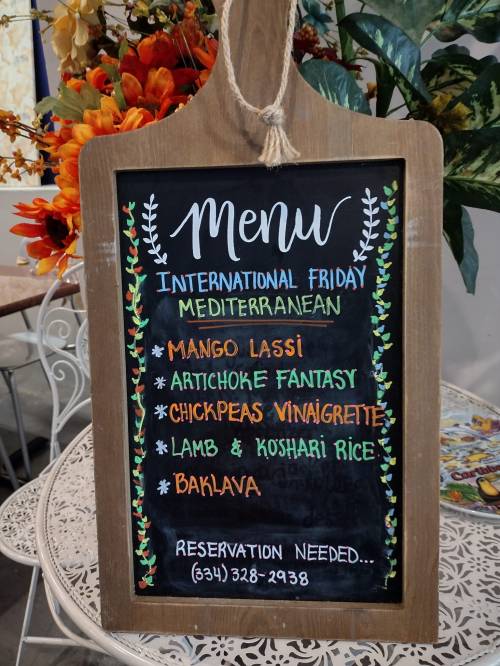 Menu
INTERNATIONAL FRIDAY
MEDITERRANEAN
* MANGO LASSI
* ARTICHOKE FANTASY
* CHICKPEAS VINAIGRETTE
* LAMB & KOSHARI RICE
* BAKLAVA
RESERVATION NEEDED...
(334) 328-2938